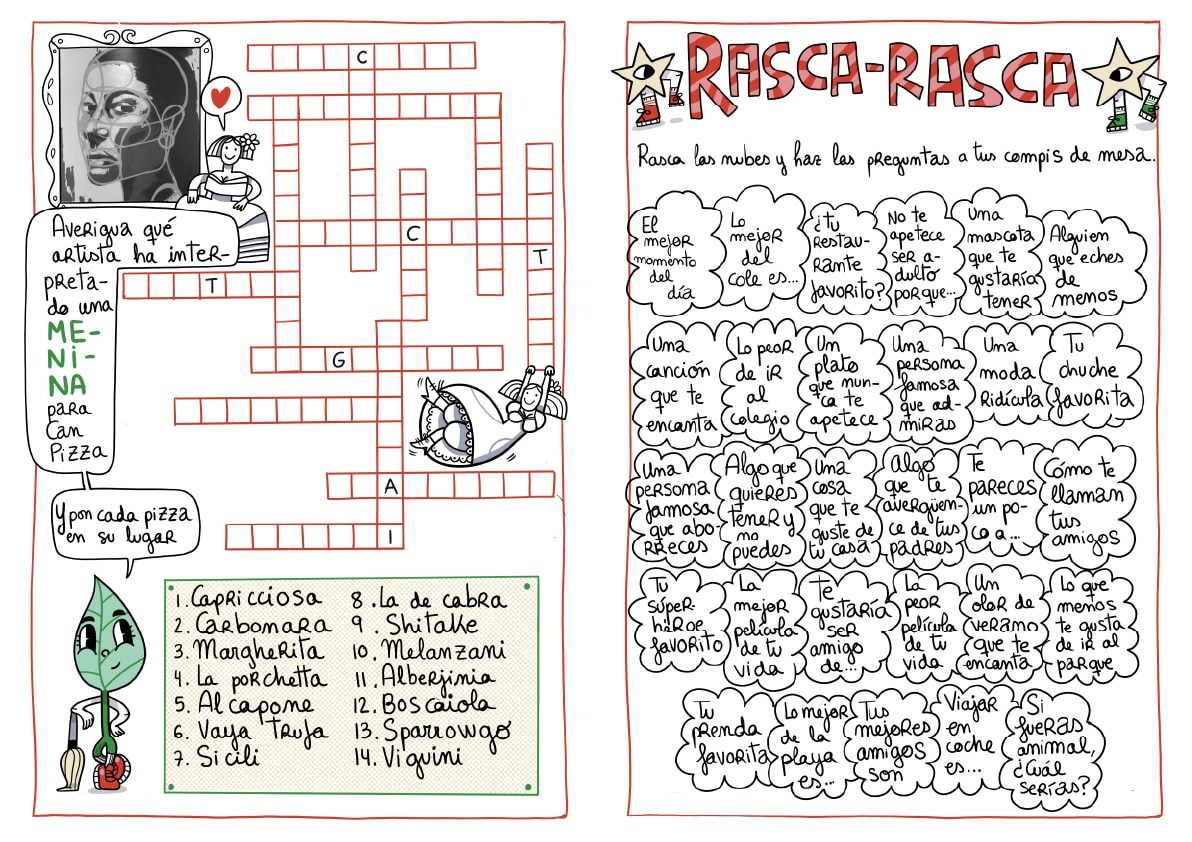 C
C
T
T
G
A
I
Averigua qué
artista ha inter-
preta-
do una
ME-
NI-
NA
para
Can
Pizza
Y pon cada pizza
en su lugar
1. Capricciosa
2. Carbonara
3. Margherita
4. La porchetta
5. Al capone
6. Vaya trufa
7. Sicili
8. La de cabra
9. Shitake
10. Melanzani
11. Alberjinia
12. Boscaiola
13. Sparrowgo
14. Viguini
RASCA-RASCA
Rasca las nubes y haz las preguntas a tus compis de mesa.
El
mejor
momento
del
día
Lo
mejor
del
cole es...
¿Tu
restau-
rante
favorito?
No te
apetece
ser a-
dulto
porque...
Una
mascota
que te
gustaría
tener
Alguien
que eches
de
menos
Una
canción
que te
encanta
Lo peor
de ir
al
colegio
Un
plato
que nun-
ca te
apetece
Una
persona
famosa
que ad-
miras
Una
moda
ridícula
Tu
chuche
favorita
Una
persona
famosa
que abo-
rreces
Algo que
quieres
tener y
no
puedes
Una
cosa
que te
guste de
tu casa
Algo
que te
avergüen-
ce de tus
padres
Te
pareces
un po-
co a...
Cómo te
llaman
tus
amigos
Tu
súper-
héroe
favorito
La
mejor
película
de tu
vida
Te
gustaría
ser
amigo
de...
La
peor
película
de tu
vida
Un
olor de
verano
que te
encanta
Lo que
menos
te gusta
de ir al
parque
Tu
prenda
favorita
Lo mejor
de la
playa
es...
Tus
mejores
amigos
son
Viajar
en
coche
es...
Si
fueras
animal,
¿Cuál
serías?